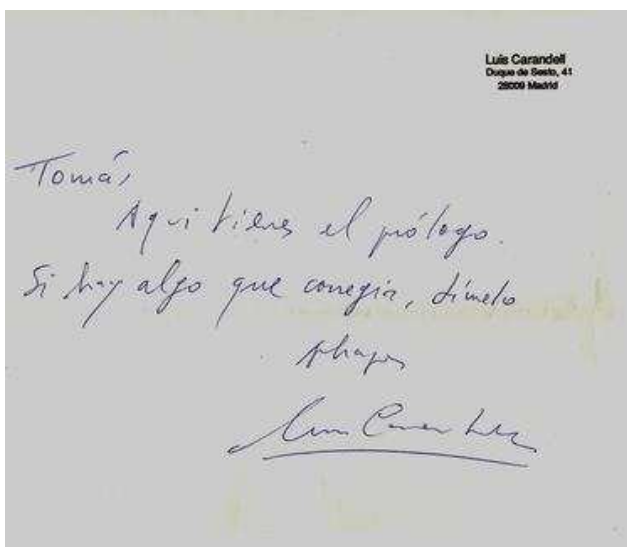 Luis Carandell
Duque de Sesto, 41
28009 Madrid
Tomás
Aqui tienes el prólogo.
Si hay algo que corregir, dímelo
Abrazos
Luis Carandell